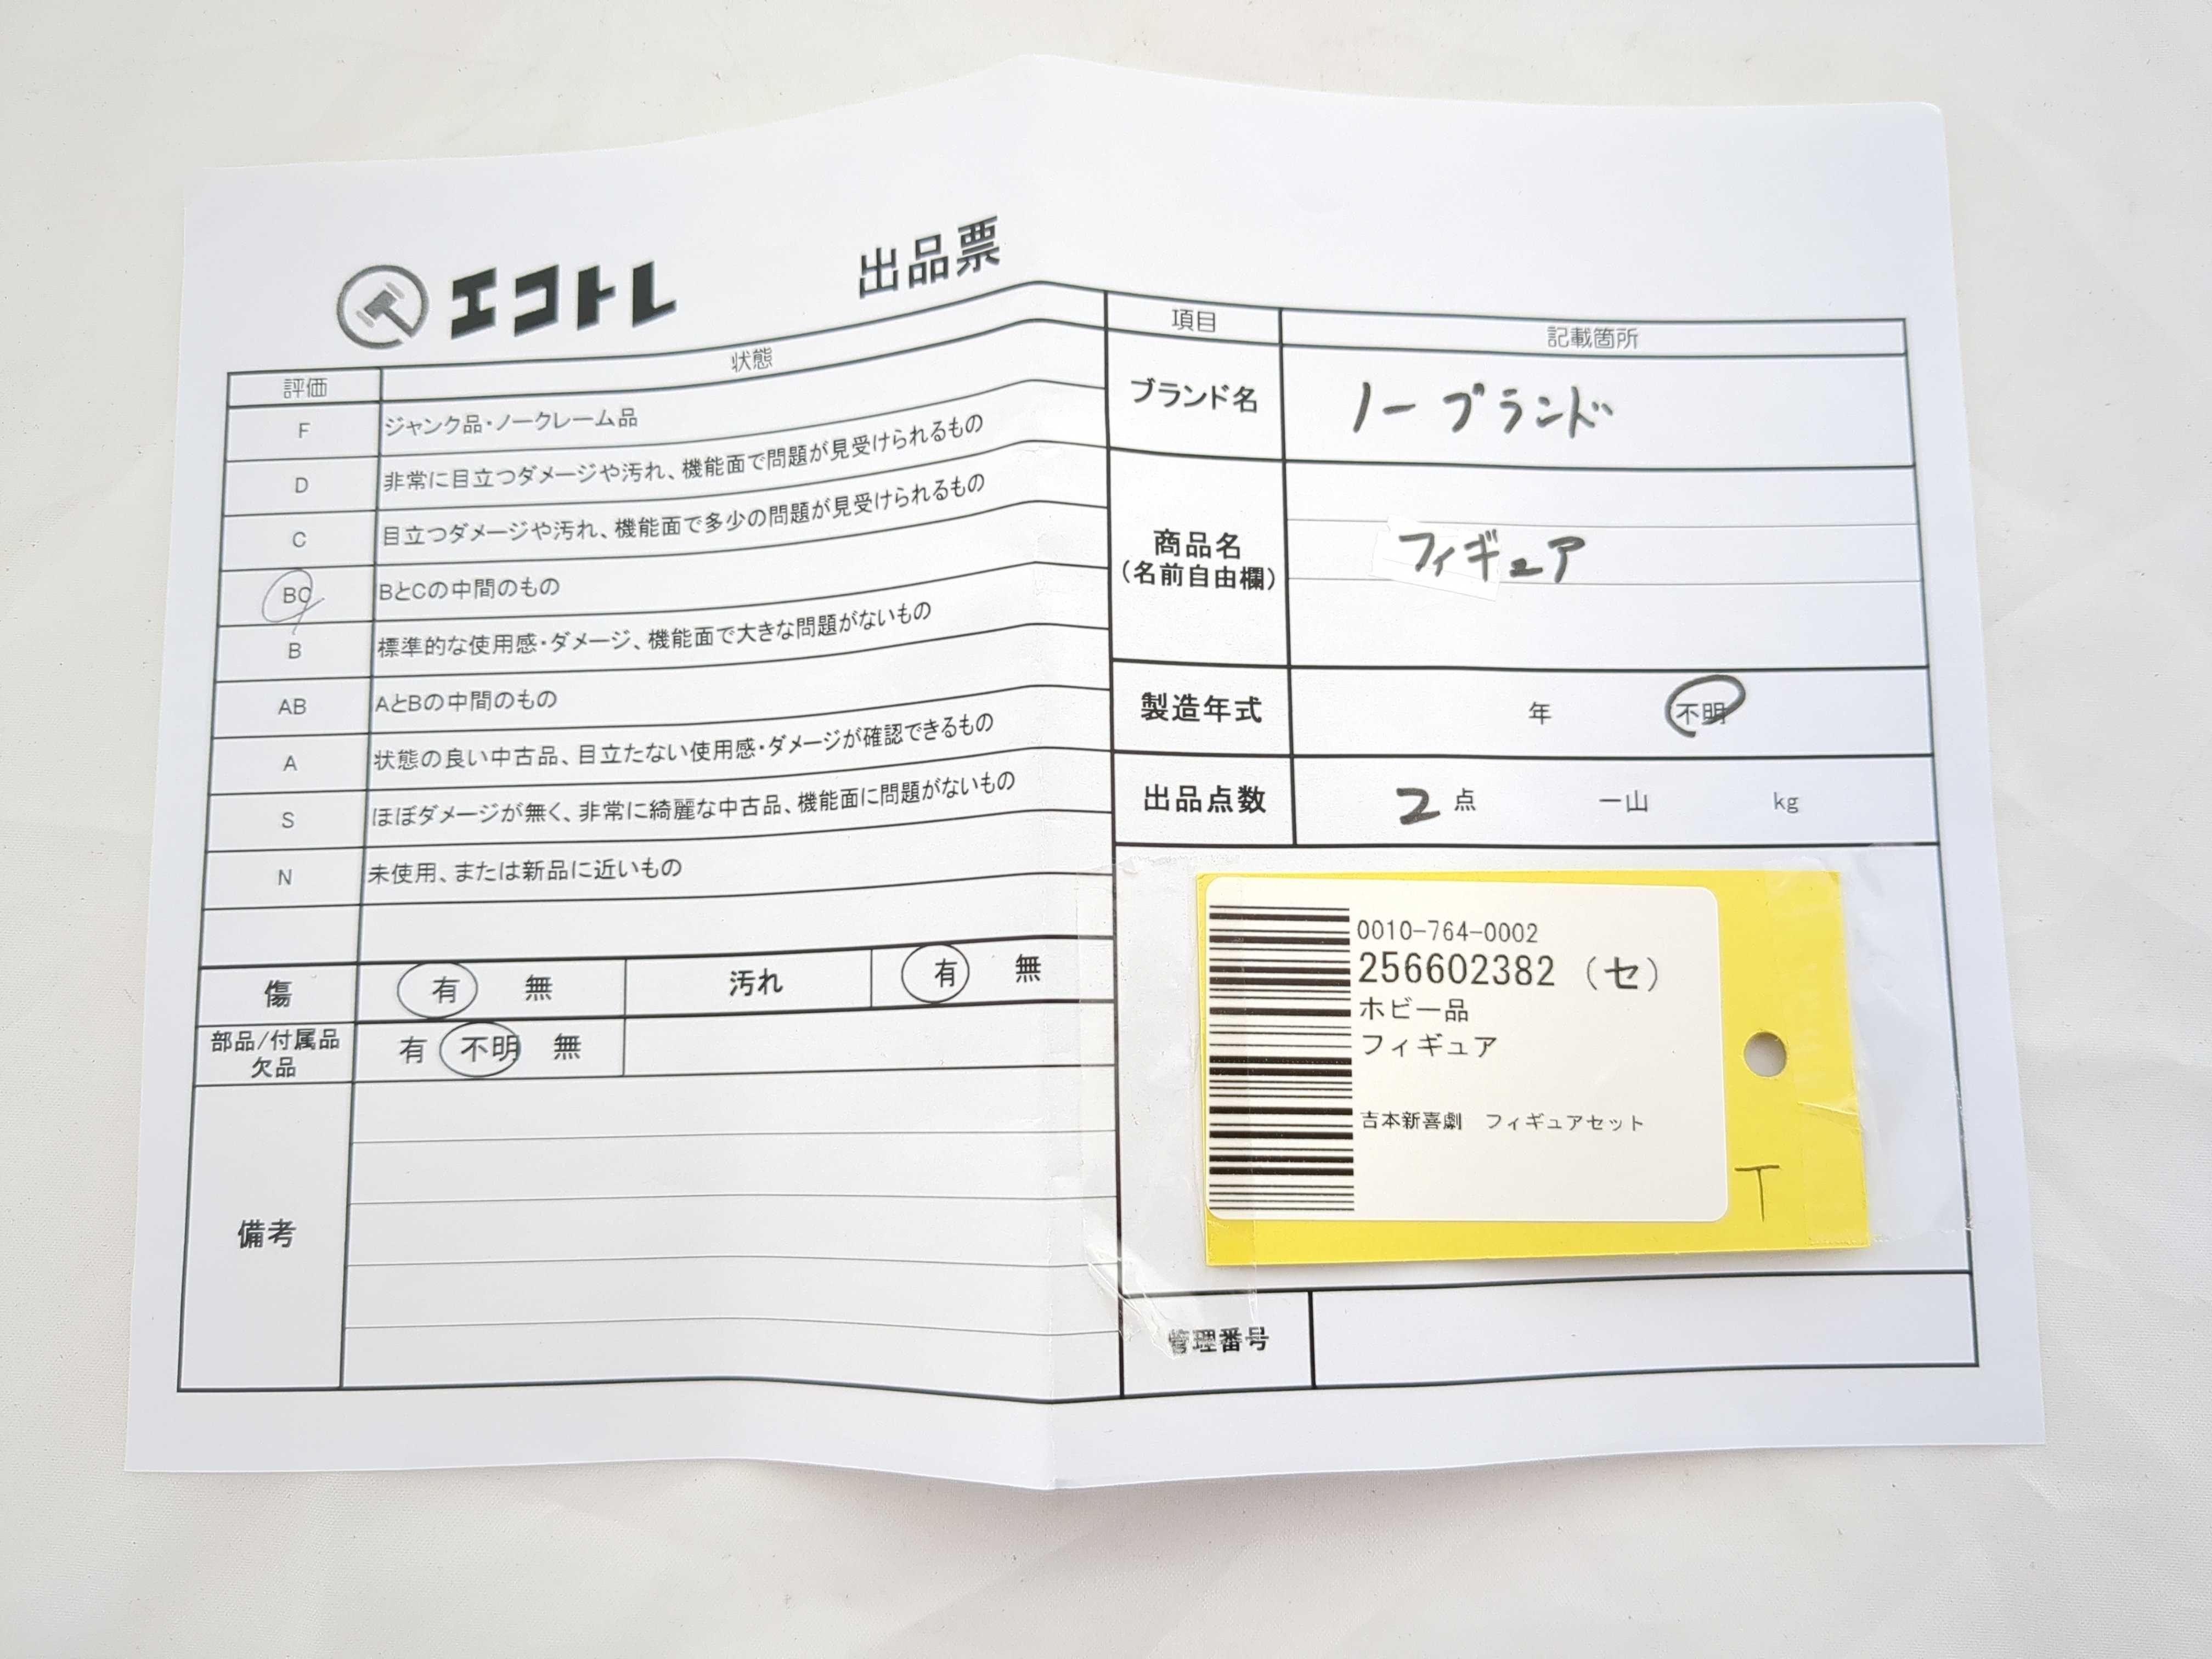 エコトレ
出品票
評価 状態
F ジャンク品・ノークレーム品
D 非常に目立つダメージや汚れ、機能面で問題が見受けられるもの
C 目立つダメージや汚れ、機能面で多少の問題が見受けられるもの
BC BとCの中間のもの
B 標準的な使用感・ダメージ、機能面で大きな問題がないもの
AB AとBの中間のもの
A 状態の良い中古品、目立たない使用感・ダメージが確認できるもの
S ほぼダメージが無く、非常に綺麗な中古品、機能面に問題がないもの
N 未使用、または新品に近いもの
傷 有 無 汚れ 有 無
部品/付属品
欠品
有 不明 無
備考
項目 記載箇所
ブランド名 ノーブランド
商品名
(名前自由欄)
フィギュア
製造年式 年 不明
出品点数 2 点 一山 kg
0010-764-0002
256602382 (セ)
ホビー品
フィギュア
吉本新喜劇 フィギュアセット
T
管理番号